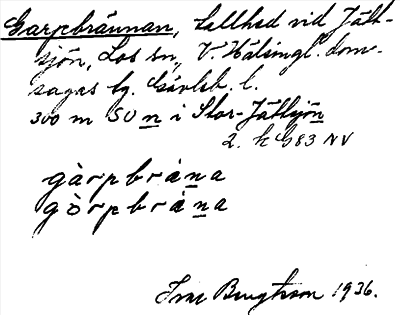 Garpbrännan, tallhed vid Jätt-
sjön, Los sn, V. Hälsingl. dom-
sagas tg. Gävleb. l.
300 m SV n i Stor-Jättsjön
2. k G83 NV
gàrpbrána
gòrpbrána
Bengtsson 1936.